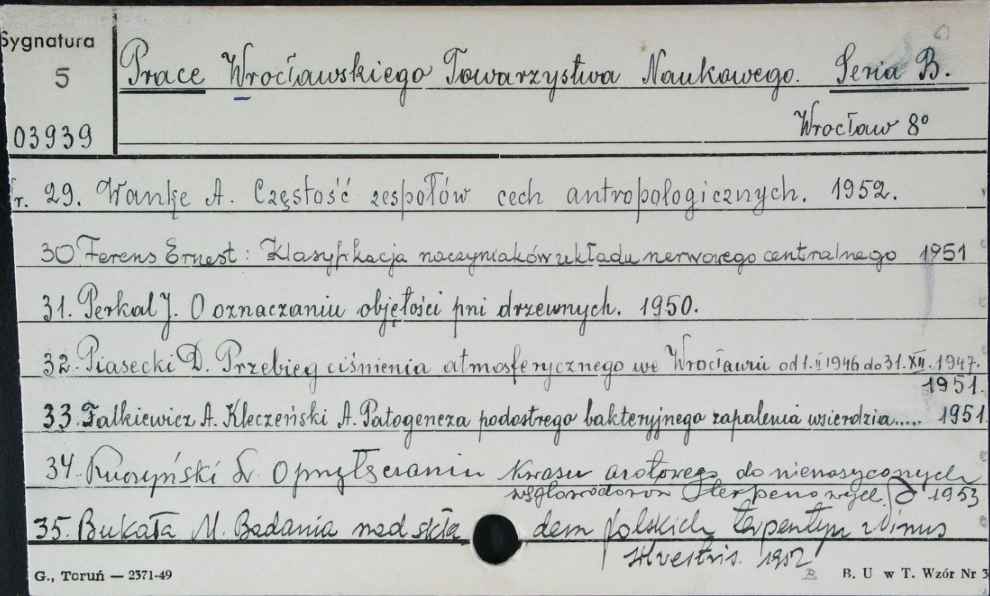 Sygnatura
5
03939
Prace Wrocławskiego Towarzystwa Naukowego. Seria B.
Wrocław 8°
29. Wanke A. Częstość zespołów cech antropologicznych. 1952.
30 Ferens Ernest: Klasyfikacja naczyniaków układu nerwowego centralnego 1951
31. Perkal J. O oznaczaniu objętości pni drzewnych. 1950.
32. Piasecki D. Przebieg ciśnienia atmosferycznego we Wrocławiu od 1.II 1946 do 31.XII.1947.
1951.
33. Falkiewicz A. Kleczeński A. Patogeneza podostrego bakteryjnego zapalenia wsierdzia..... 1951
34. Kuczyński L. O przyłączaniu kwasu azotowego do nienasyconych
węglowodorów terpenowych 1953
35. Bukała M. Badania nad skła dem polskich terpentyn Pinus
silvestris. 1952
G., Toruń — 2371-49
B. U w T. Wzór Nr 3